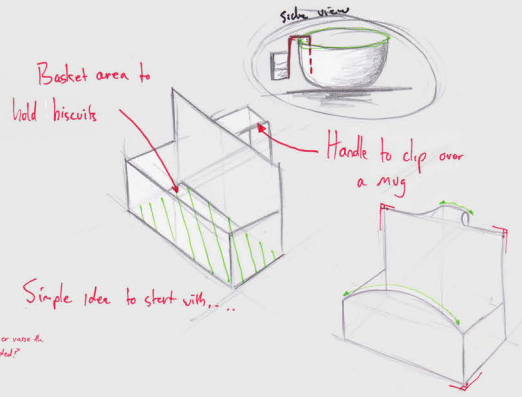 side view
Basket area to
hold biscuits
Handle to clip over
a mug
Simple idea to start with....
or raise the